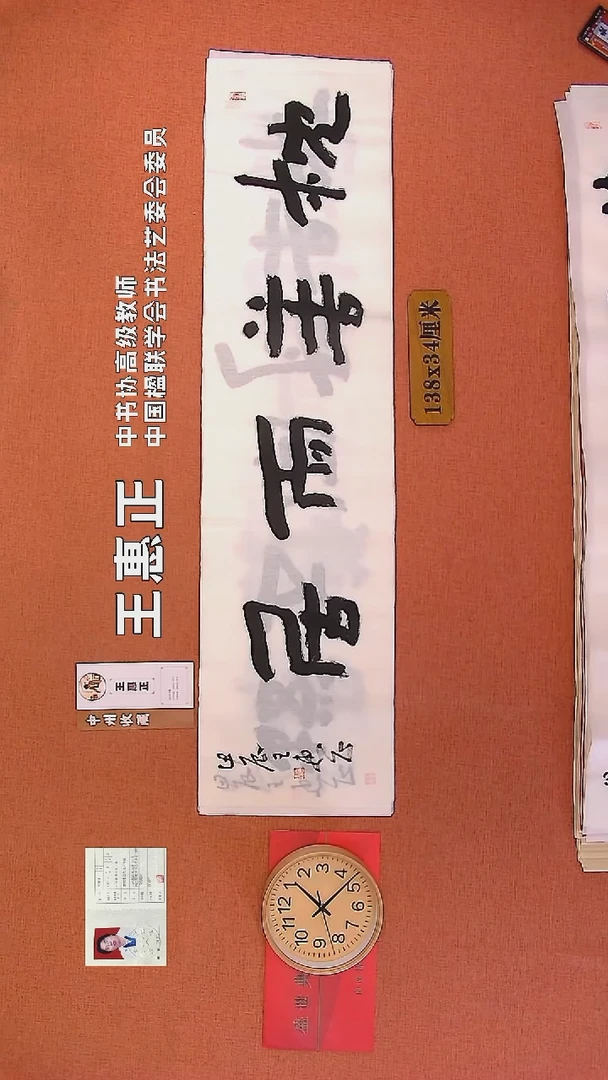 中书协高级教师
中国楹联学会书法艺委会委员
王惠正
枕善而居
甲辰王惠正
138x34厘米
王惠正
中州收藏
盛世典
12
1
2
3
4
5
6
7
8
9
10
11